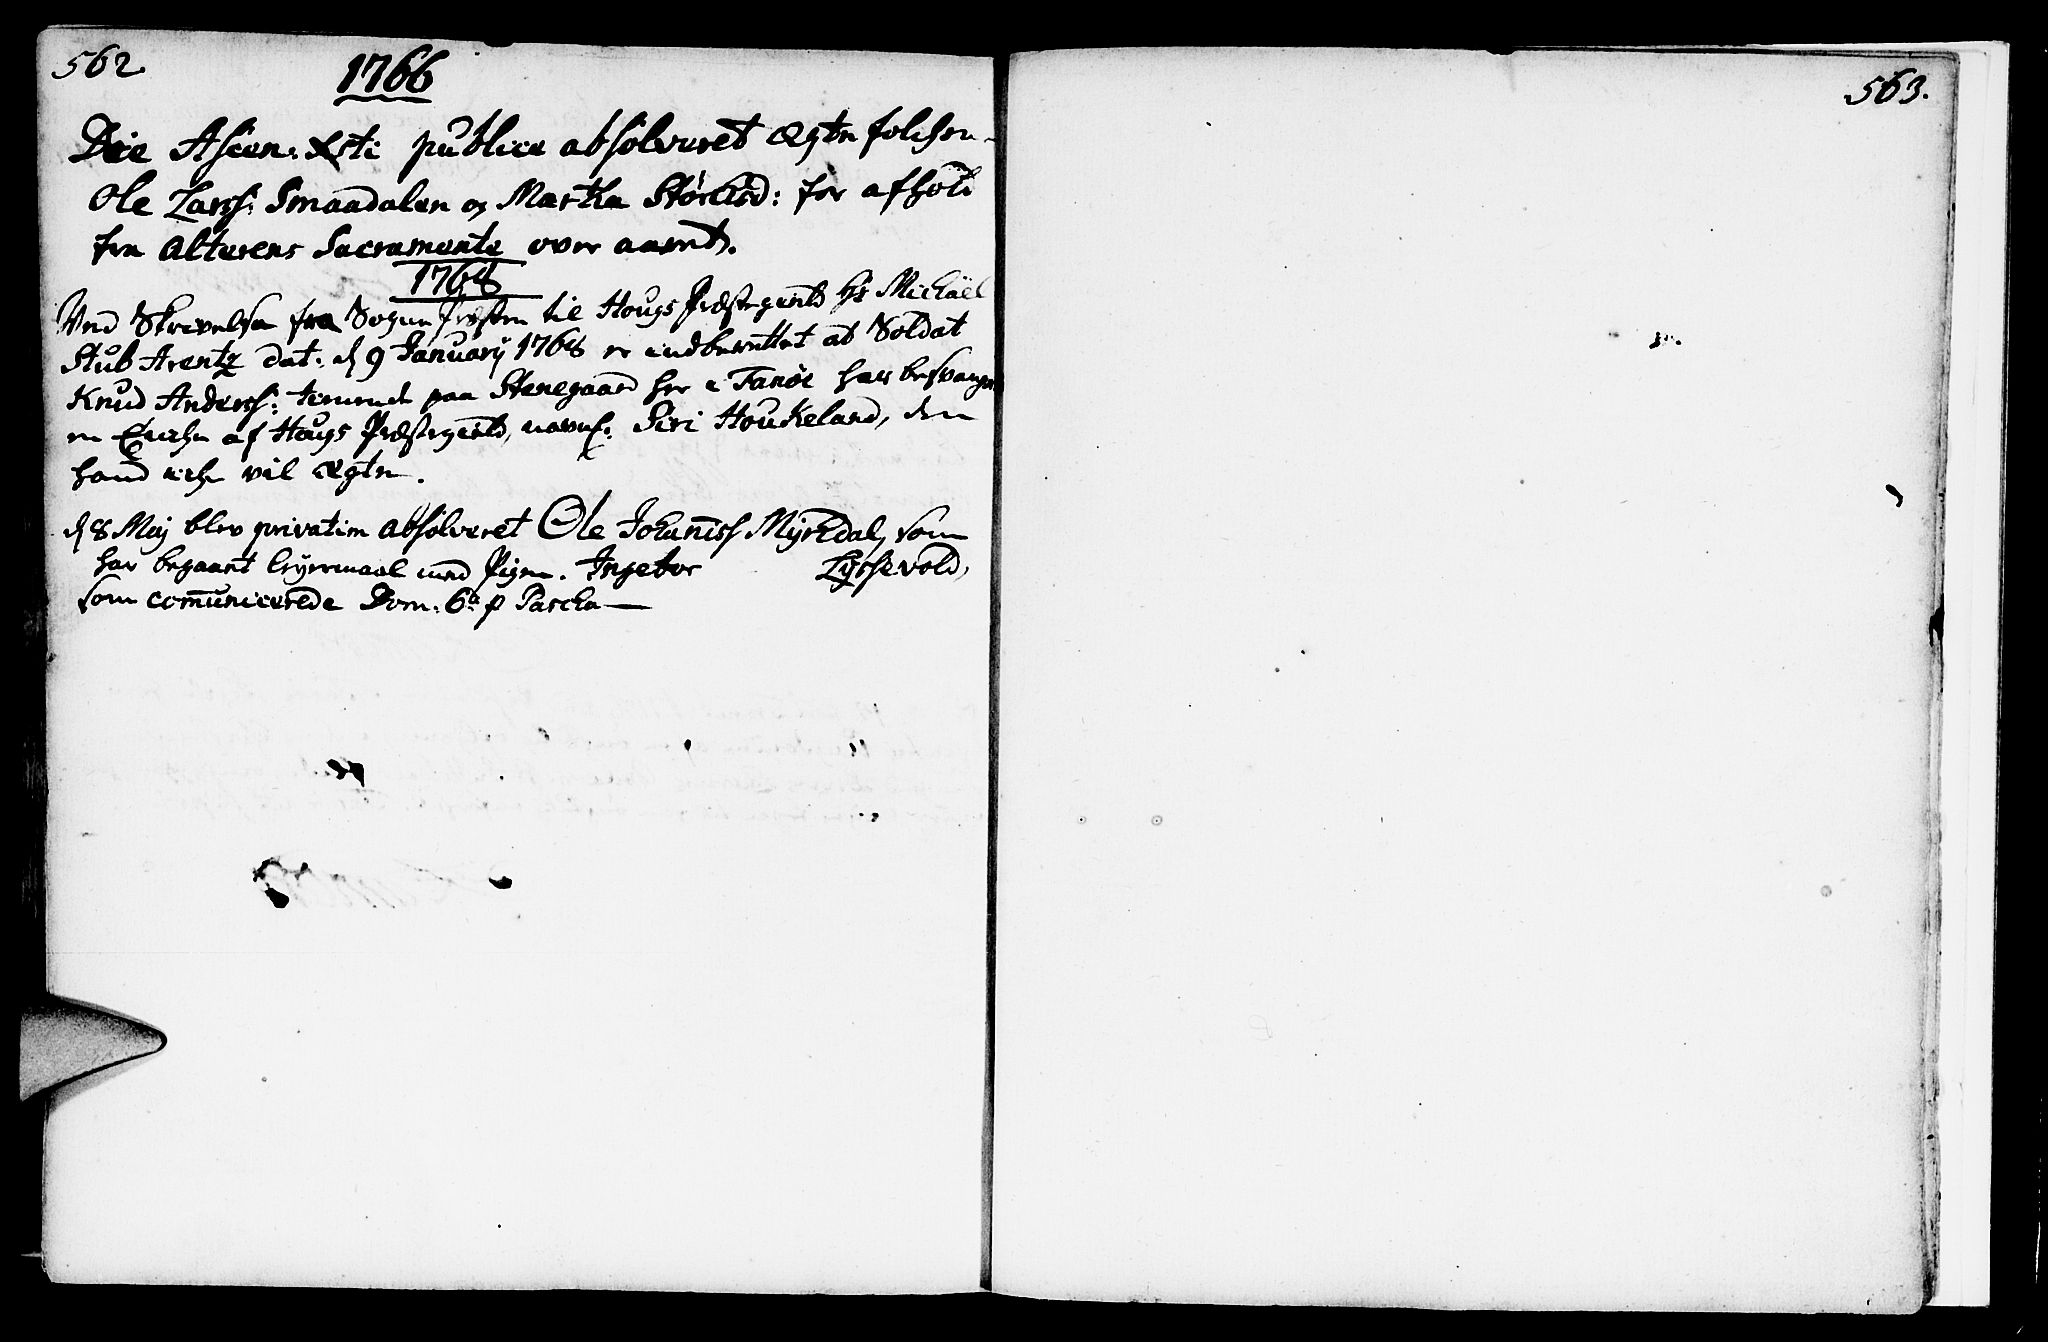 562.
1766
Die Ascen: Xsti publice absolveret ægte folchene
Ole Larss: Smaadalen og Martha Størchsd: for afhold
fra Alterens Sacramente over aaret.
1768
Ved Skrivelse fra Sogne Præsten til Hougs Præstegield Hr Michäel
Stub Arentz dat: d 9 January 1768 er indberettet at Soldat
Knud Anderss: tienende paa Stenegaard her i Fanøe har besvangret
en Enche af Hougs Præstegield, navnl: Siri Houkeland, den
hand iche vil ægte.
d 8 Maj blev privatim absolveret Ole Johaniss Myrchdal, som
har begaaet leyermaal med Pigen. Ingebor Lyssevold,
som comunicerede Dom: 6 p Pascha
563.